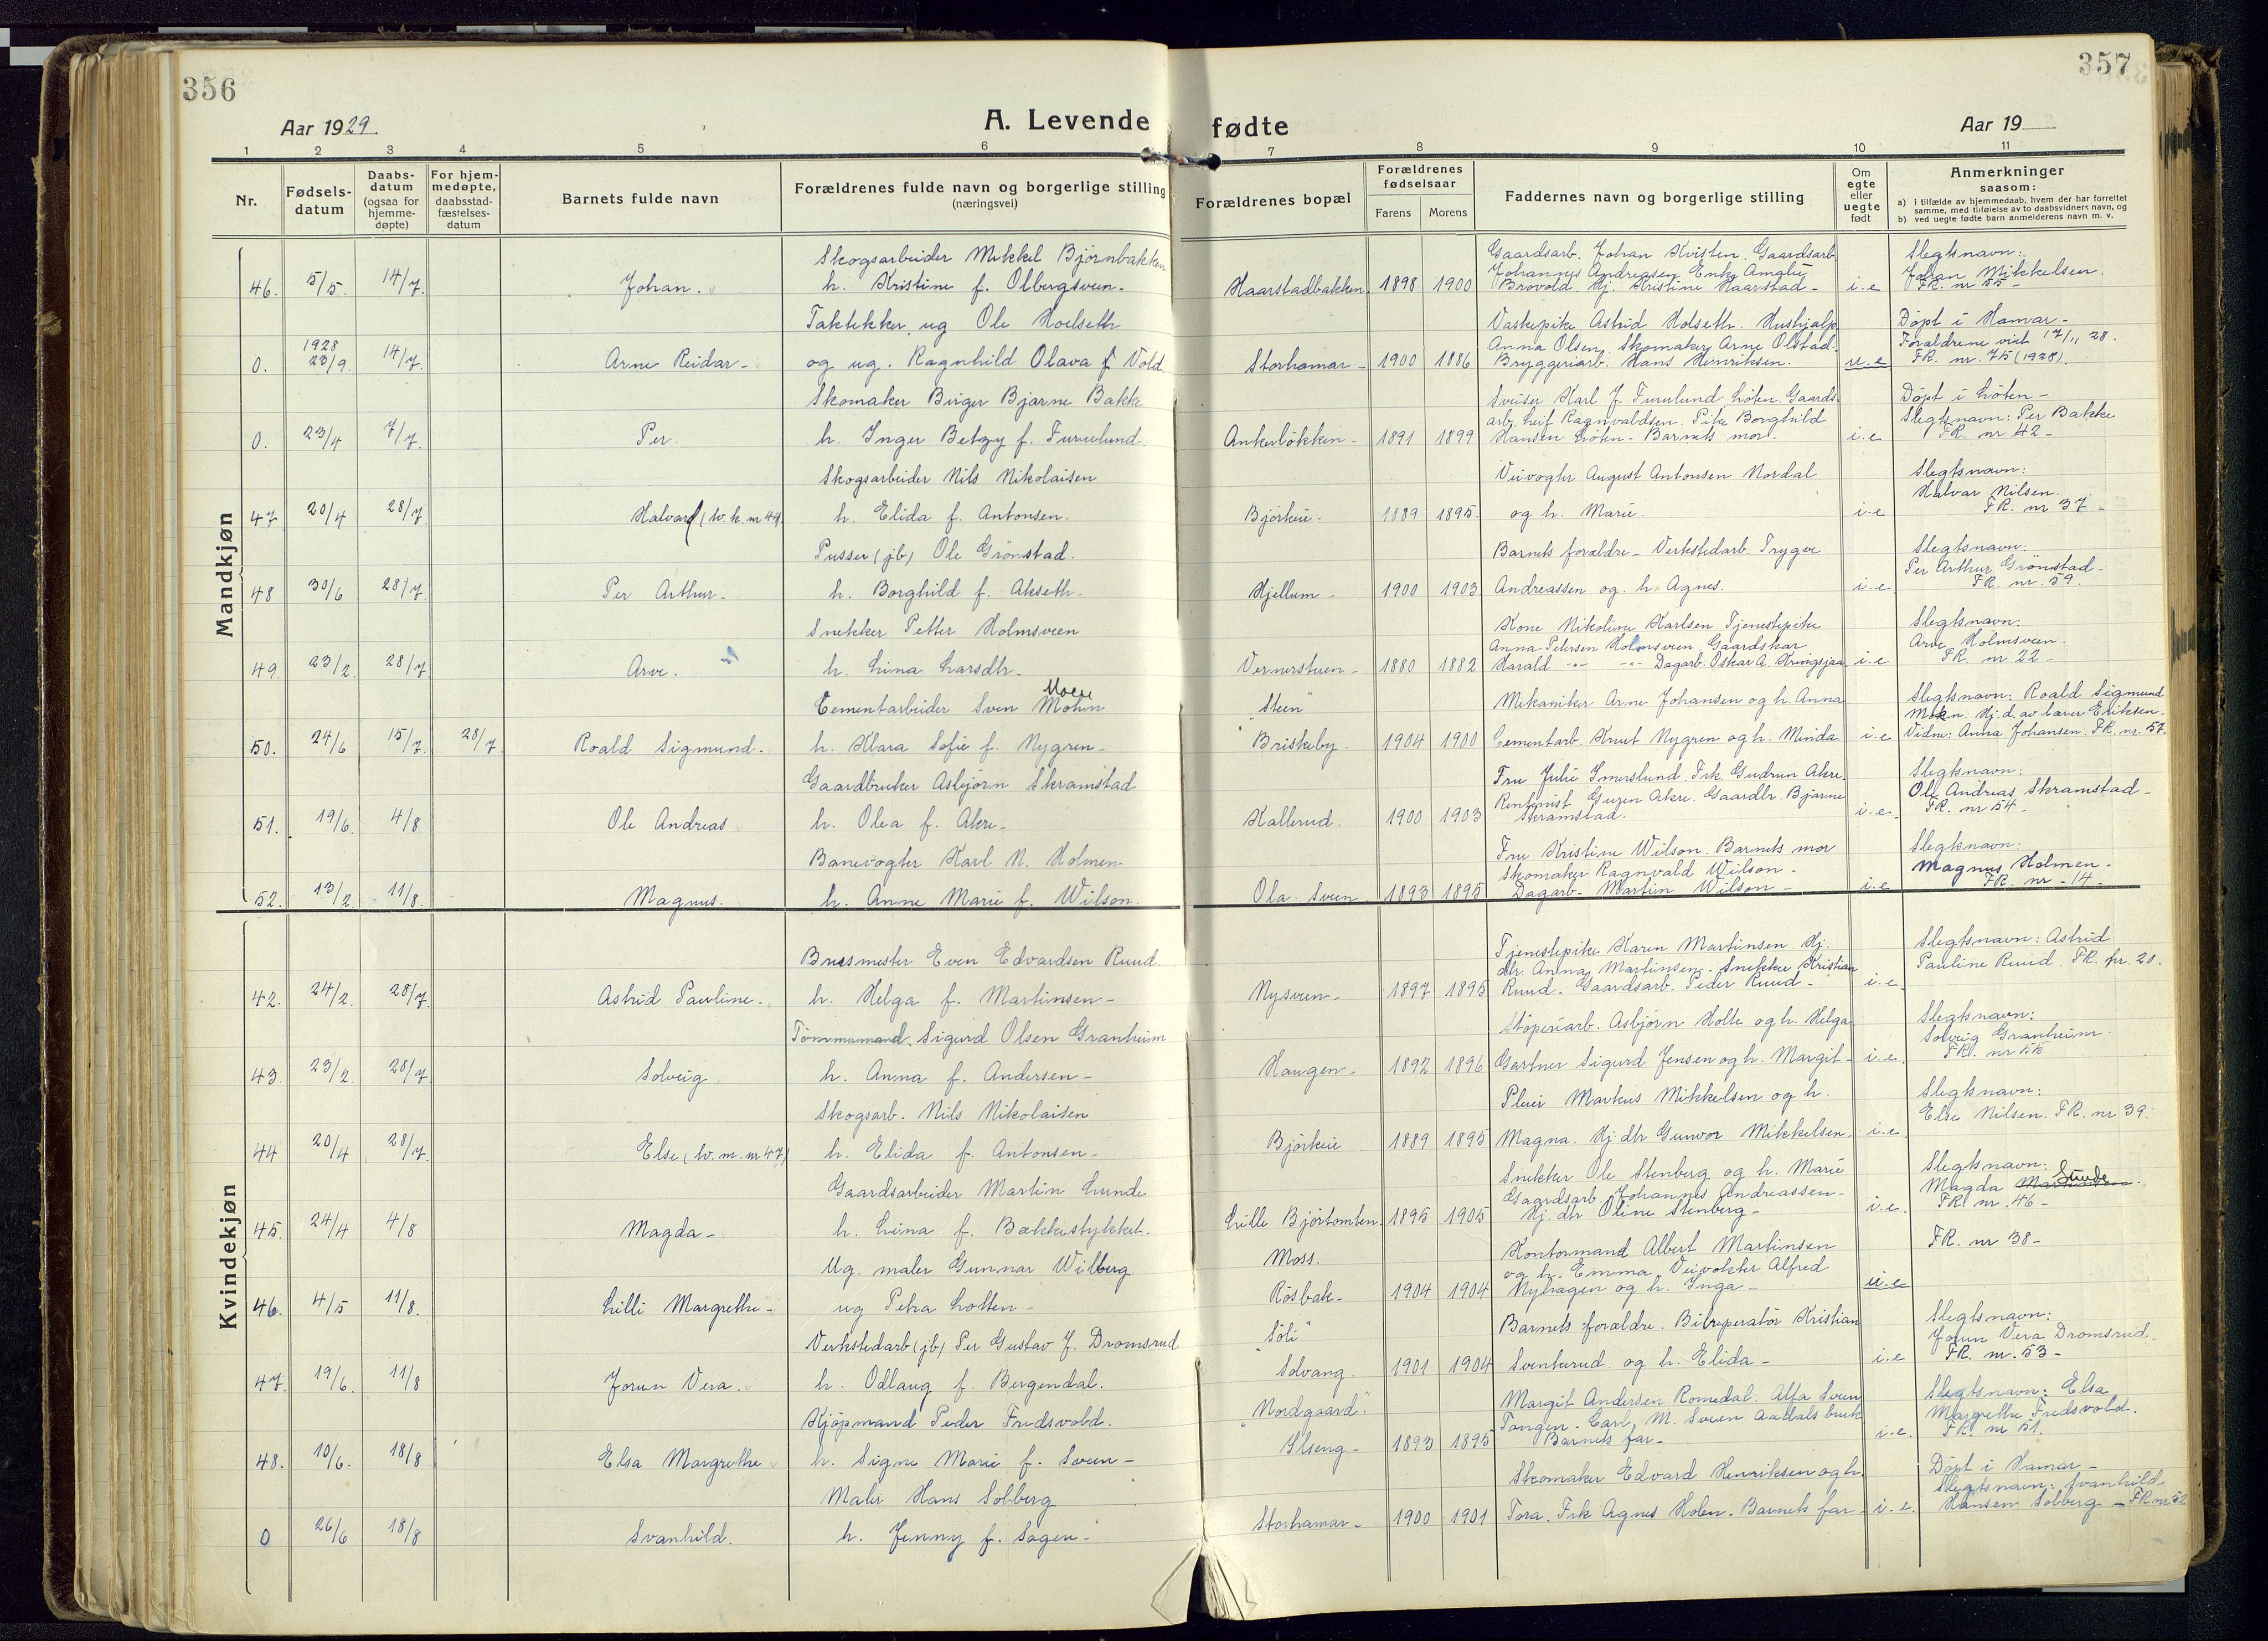 356
Aar 1929.
A. Levende fødte
357
Aar 19
1 2 3 4 5 6 7 8 9 10 11
Nr.
Fødsels-
datum
Daabs-
datum
(ogsaa for
hjemme-
døpte)
For hjem-
medøpte,
daabsstad-
fæstelses-
datum
Barnets fulde navn
Forældrenes fulde navn og borgerlige stilling
(næringsvei)
Forældrenes bopæl
Forældrenes
fødselsaar
Farens Morens
Faddernes navn og borgerlige stilling
Om
egte
eller
uegte
født
Anmerkninger
saasom:
a) i tilfælde av hjemmedaab, hvem der har forrettet
samme, med tilføielse av to daabsvidners navn, og
b) ved uegte fødte barn anmelderens navn m. v.
Mandkjøn
46. 5/5. 14/7. Johan.
Skogsarbeider Mikkel Bjørnbakken
h. Kristine f. Olbergsveen-
Haarstadbakken 1898 1900
Gaardsarb. Johan Kvisten. Gaardsarb.
Johannes Andreasen Enke Amalie
Brovold. Hj. Kristine Haarstad-
i.e
Slegtsnavn:
Johan Mikkelsen.
FR. nr 55-
0. 1928 23/9. 14/7. Arne Reidar-
Taktekker, ug Ole Hoelseth
og ug. Ragnhild Olava f Vold.
Storhamar- 1900 1886
Vaskepike Astrid Holseth. Hushjælp
Anna Olsen, Skomaker Arne Olstad.
Bryggeriarb. Hans Henriksen.
u.e
Døpt i Hamar-
Forældrene viet 17/11 28.
FR. nr. 75 (1928).
0. 23/4 7/7. Per.
Skomaker Birger Bjarne Bakke
h. Inger Betzy f. Furulund.
Ankerløkken- 1891 1899
Sveiser Karl J. Furulund Løten. Gaards-
arb. Leif Ragnvaldsen. Pike Borghild
Hansen Løten- Barnets mor.
i.e
Døpt i Løten-
Slegtsnavn: Per Bakke
FR. nr 42-
47 20/4 28/7. Halvard (tv. k. nr 44.
Skogsarbeider Nils Nikolaisen
h. Elida f. Antonsen.
Bjørkeie- 1889 1895.
Veivogter August Antonsen Nordal
og h. Marie.
i.e
Slegtsnavn:
Halvar Nilsen.
FR. nr 37-
48 30/6 28/7. Per Arthur-
Pusser (jb) Ole Grønstad.
h. Borghild f. Akseth-
Hjellum- 1900 1903
Barnets forældre- Verkstedarb. Trygve
Andreassen og. h. Agnes.
i.e.
Slegtsnavn:
Per Arthur Grønstad-
FR. nr. 59.
49. 23/2. 28/7. Arve.
Snekker Petter Holmsveen
h. Lina Larsdtr-
Vernerstuen- 1880 1882
Kone Nikoline Karlsen Tjenestepike
Anna Petersen Holmsveen Gaardskar
Harald -"- -"- Dagarb. Oskar A. Kringsjaa
i.e
Slegtsnavn:
Arve Holmsveen.
FR. nr 22-
50. 24/6 15/7. 28/7. Roald Sigmund.
Cementarbeider Sven Mohn Moen
h. Klara Sofie f. Nygren-
"Steen"
Briskeby- 1904 1900
Mekaniker Arne Johansen og h. Anna
Cementarb. Knut Nygren og h. Minda
i.e
Slegtsnavn: Roald Sigmund
Moen. Hj.d. av lærer Eriksen-
Vidne: Anna Johansen. FR. nr. 57.
51. 19/6. 4/8 Ole Andreas
Gaardbruker Asbjørn Skramstad
h. Olea f. Akre-
Kallerud. 1900 1903
Fru Julie Imerslund. Frk Gudrun Akre.
Rentenist Guren Akre. Gaardbr. Bjarne
Skramstad.
i.e.
Slegtsnavn:
Ole Andreas Skramstad-
FR. nr 54-
52. 13/2. 11/8. Magnus.
Banevogter Karl N. Holmen
h. Anne Marie f. Wilson.
Ola Sveen 1893 1895
Fru Kristine Wilson. Barnets mor
Skomaker Ragnvald Wilson-
Dagarb- Martin Wilson-
i.e
Slegtsnavn:
Magnus Holmen-
FR. nr -14-
Kvindekjøn
42. 24/2. 28/7. Astrid Pauline-
Brusmester Even Edvardsen Ruud.
h. Helga f. Martinsen-
Nysveen- 1897 1895
Tjenestepike Karen Martinsen Hj.
dtr. Anna Martinsen- Snekker Kristian
Ruud. Gaardsarb. Peder Ruud-
i.e.
Slegtsnavn: Astrid
Pauline Ruud. FR. nr. 20.
43. 23/2. 28/7. Solveig
Tømmermand. Sigurd Olsen Granheim
h. Anna f. Andersen-
Haugen- 1892 1896
Støperiarb. Asbjørn Holte og h. Helga
Gartner Sigurd Jensen og h. Margit-
i.e.
Slegtsnavn:
Solveig Granheim.
FR. nr
44 20/4 28/7. Else (tv. m. nr 47)
Skogsarb. Nils Nikolaisen
h. Elida f. Antonsen-
Bjørkeie 1889 1895
Pleier Markus Mikkelsen og h.
Magna. Hj.dtr Gunvor Mikkelsen.
i.e.
Slegtsnavn:
Else Nilsen. FR. nr 39.
45. 24/4 4/8 Magda-
Gaardsarbeider Martin Lunde
h. Lina f. Bækkestykket.
Lille Bjørtomten. 1895 1905
Snekker Ole Stenberg og h. Marie
Gaardsarb. Johannes Andreassen-
Hj. dtr Oline Stenberg-
i.e.
Slegtsnavn:
Magda Martinsen Lunde.
FR. nr. 46-
46. 4/5 11/8. Lilli Margrethe-
Ug. maler Gunnar Wilberg
ug Petra Lotten-
Moss.
Røsbak- 1904 1904
Kontormand Albert Martinsen
og h. Emma. Veivokter Alfred
Nyhagen og h. Inga-
u.e
FR. nr 38-
47. 19/6. 11/8 Jorun Vera.
Verkstedarb (jb) Per Gustav J. Dromsrud
h. Odlaug f. Bergendal.
"Søli"
Solvang. 1901 1904
Barnets forældre. Bilreperatør Kristian
Svenkerud og h. Elida-
i.e
Slegtsnavn:
Jorun Vera Dromsrud.
FR. nr. 53-
48. 10/6. 18/8 Elsa Margrethe
Kjøpmand Peder Fredsvold.
h. Signe Marie f. Sveen-
"Nordgaard".
Ilseng- 1893 1895
Margit Andersen Romedal. Alfa Sveen
Tangen. Carl M. Sveen Aadals bruk
Barnets far-
i.e.
Slegtsnavn: Elsa
Margrethe Fredsvold.
FR. nr 51.
0 26/6 18/8 Svanhild.
Maler Hans Solberg
h. Jenny f. Sagen-
Storhamar- 1900 1901
Skomaker Edvard Henriksen og h.
Tora. Frk Agnes Holen. Barnets far-
i.e.
Døpt i Hamar-
Slegtsnavn: Svanhild
Hansen Solberg-FR nr 52